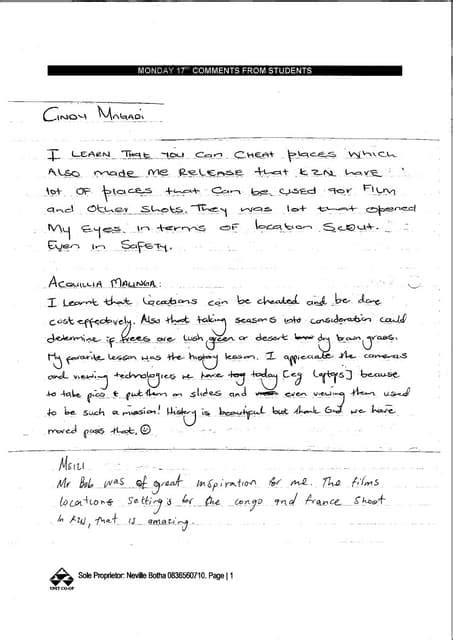 MONDAY 17TH COMMENTS FROM STUDENTS
CINDY MAGADI
I LEARN THAT YOU CAN CHEAT places WHICH
ALSO made me RELEASE that KZN have
lot OF places that can be used for FILM
and other shots. They was lot that opened
My Eyes in terms OF location Scout.
Even in SAFETY.
ACQUILLIA MALINGA:
I learnt that locations can be cheated and be done
cost effectively. Also that taking seasons into consideration could
determine if trees are lush green or desert dry brown grass.
My favorite lesson was the history lesson. I appreciate the cameras
and viewing technologies we have today [eg laptops] because
to take pics & put them on slides and even viewing them used
to be such a mission! History is beautiful but thank God we have
moved pass that. ☺
MSIZI
Mr Bob was of great inspiration for me. The films
locations setting's for the congo and france shoot
in KZN, that is amazing.
Sole Proprietor: Neville Botha 0836560710. Page | 1
UNIT CO-OP